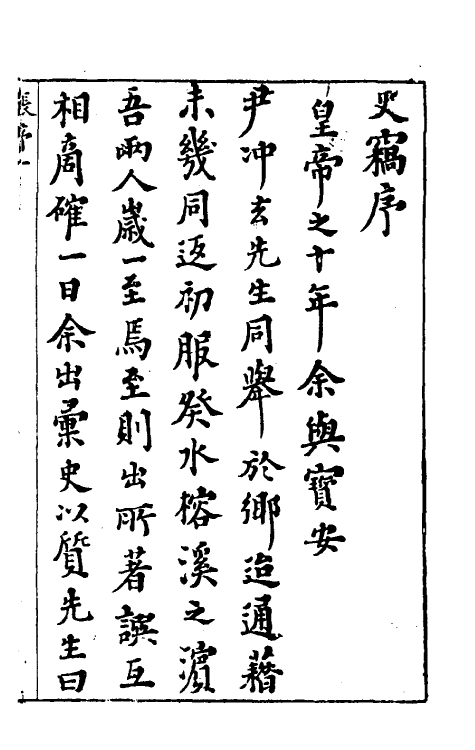 史竊序
皇帝之十年余與寶安
尹冲玄先生同舉於鄉迨通藉
未幾同返初服癸水榕溪之濵
吾兩人歲一至焉至則出所著譔互
相商確一日余出彙史以質先生曰
張序一